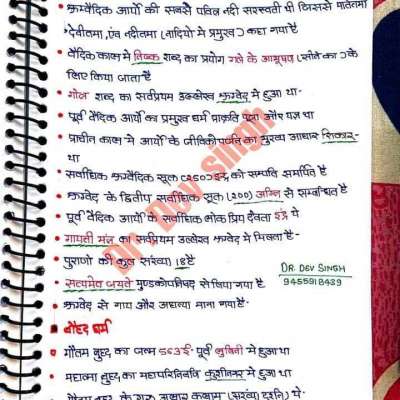 ऋग्वैदिक आर्यो की सबसे पवित्र नदी सरस्वती थी जिससे मातेतमा
देवीतमा, एवं नदीतमा (नादियो मे प्रमुख) कहा गया है
वैदिक काल मे निष्क शब्द का प्रयोग गले के आभूषण (सोने का) के
लिए किया जाता है
गोत्र शब्द का सर्वप्रथम उल्लेख ऋग्वेद मे हुआ था
पूर्व वैदिक आर्यो का प्रमुख धर्म प्राकृति पूजा और यज्ञ था
प्राचीन काल मे आर्यो के जीविकोपार्जन का मुख्य आधार शिकार
था
सर्वाधिक ऋग्वैदिक सूक्त (250) इंद्र को सम्पति समर्पित है
ऋग्वेद के द्वितीय सर्वाधिक सूक्त (200) अग्नि से सम्बन्धित है
पूर्व वैदिक आर्यो के सर्वाधिक लोक प्रिय देवता इंद्र थे
गायत्री मंत्र का सर्वप्रथम उल्लेख ऋग्वेद मे मिलता है
पुराणो की कुल संख्या 18 है
सत्यमेव जयते मुण्डकोपनिषद से लिया गया है
ऋग्वेद से गाय और अघन्या माना गया है
DR. DEV SINGH
9455918439
Dr. Dev Singh
बौद्ध धर्म
गौतम बुद्ध का जन्म 563 ई. पूर्व लुंबिनी मे हुआ था
महात्मा बुद्ध का महापरिनिर्वाण कुशीनगर मे हुआ था
के गुरु आलार कलाम (सांख्य दर्शन) थे